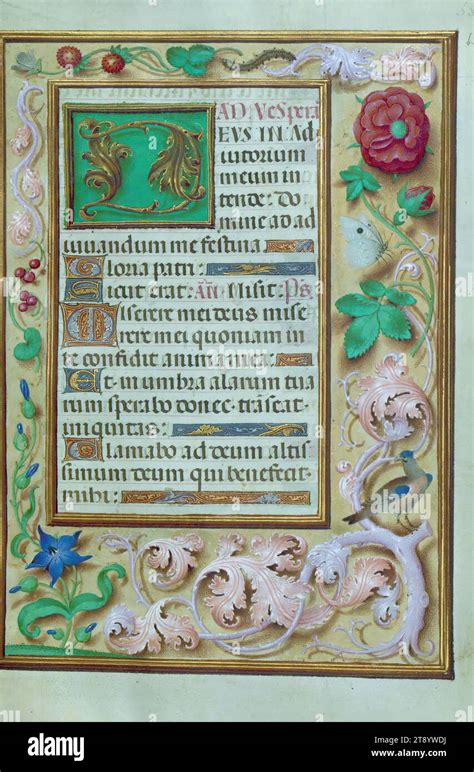 AD VESPERA
DEUS IN AD
iutorium
meum in
tende: Do
mine ad ad
iuuandum me festina
Gloria patri:
Sicut erat: Añ Misit Ps
Miserere mei deus mise
rere mei quoniam in
te confidit anima mea:
Et in umbra alarum tua
rum sperabo donec trãseat
iniquitas:
Clamabo ad deum altis
simum deum qui benefecit
mihi:
alamy
alamy
alamy
Image ID: 2T8YWDJ
www.alamy.com